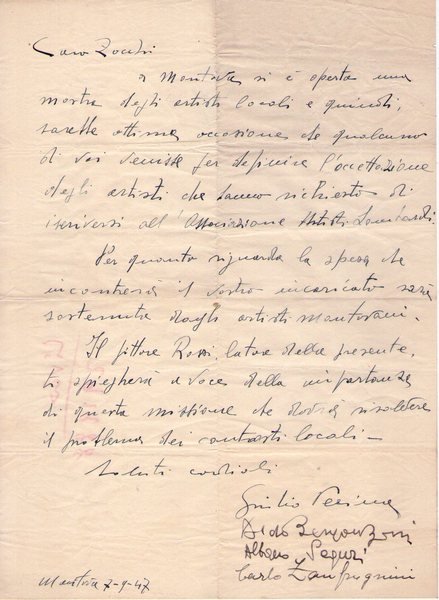 Caro Zocchi
a Mantova si è aperta una
mostra degli artisti locali e quindi,
sarebbe ottima occasione che qualcuno
di voi venisse per definire l'accettazione
degli artisti che hanno richiesto di
iscriversi all'Associazione Artisti Lombardi.
Per quanto riguarda la spesa che
incontrerà il vostro incaricato sarà
sostenuta dagli artisti mantovani.
Il pittore Rossi, latore della presente,
ti spiegherà a voce della importanza
di questa missione che dovrà risolvere
il problema dei contrasti locali -
Saluti cordiali
Giulio Perina
Aldo Bergonzoni
Albano Seguri
Carlo Zanfrognini
Mantova 7-9-47